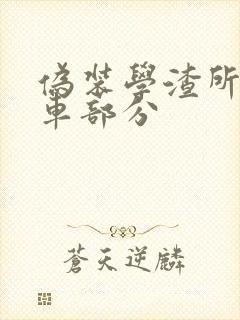 偽裝學渣所
車部分
蒼天逆麟